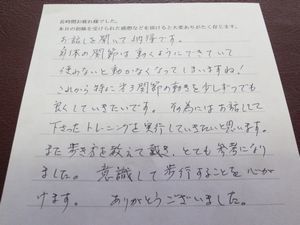 長時間お疲れ様でした。
本日の初検を受けられた感想などを頂けると大変ありがたく存じます。
お話しを聞いて納得です。
身体の関節は動くようにできていて
使わないと動かなくなってしまいますね!
これから特に関節の動きを少しずつでも
良くしていきたいです。為にはお話しして
下さったトレーニングを実行していきたいと思います。
また歩き方を教えて戴き、とても参考になり
ました。意識して歩行することを心が
けます。 ありがとうございました。